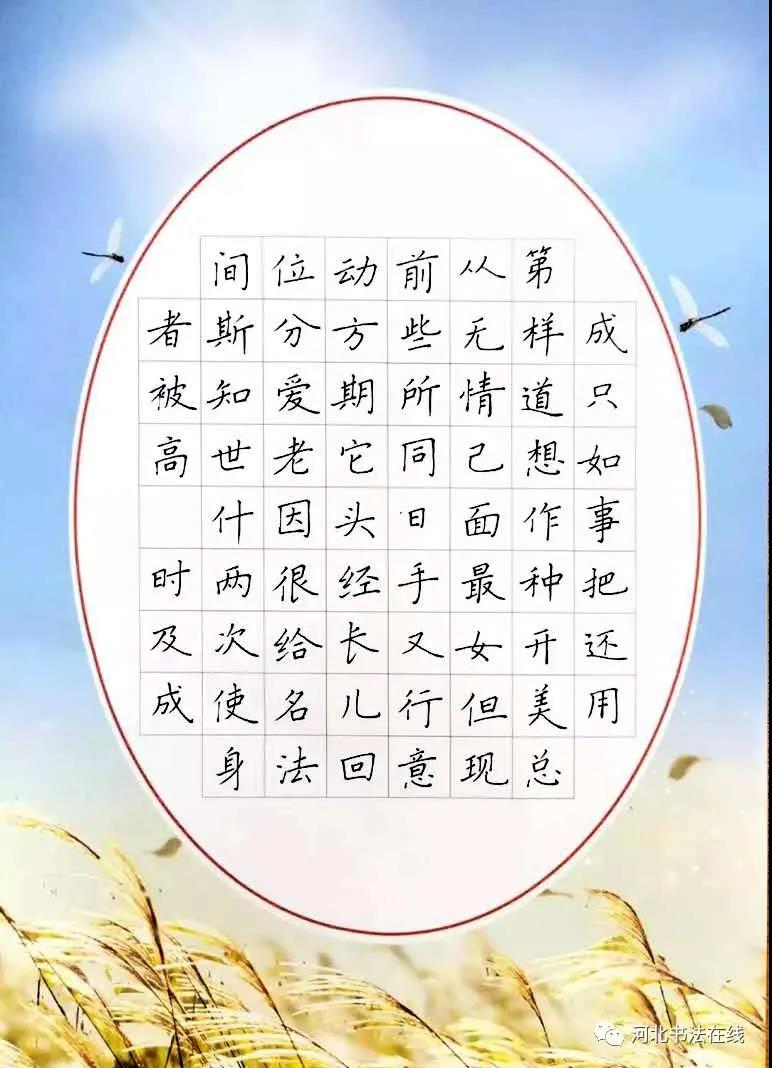 成只如事把还用
第样道想作种开美总
从无情己面最女但现
前些所同日手又行意
动方期它头经长儿回
位分爱老因很给名法
间斯知世什两次使身
者被高 时及成
河北书法在线